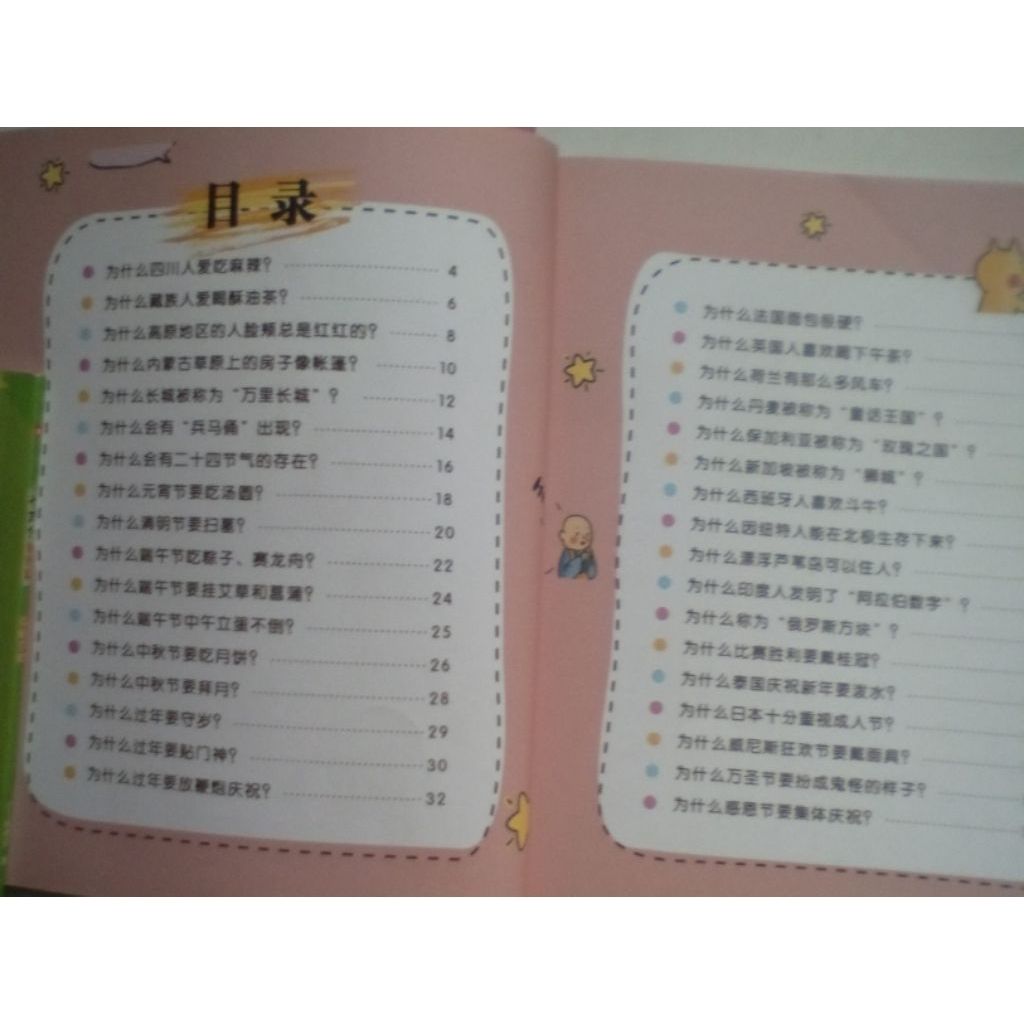 目录
为什么四川人爱吃麻辣？ 4
为什么藏族人爱喝酥油茶？ 6
为什么高原地区的人脸颊总是红红的？ 8
为什么内蒙古草原上的房子像帐篷？ 10
为什么长城被称为“万里长城”？ 12
为什么会有“兵马俑”出现？ 14
为什么会有二十四节气的存在？ 16
为什么元宵节要吃汤圆？ 18
为什么清明节要扫墓？ 20
为什么端午节吃粽子、赛龙舟？ 22
为什么端午节要挂艾草和菖蒲？ 24
为什么端午节中午立蛋不倒？ 25
为什么中秋节要吃月饼？ 26
为什么中秋节要拜月？ 28
为什么过年要守岁？ 29
为什么过年要贴门神？ 30
为什么过年要放鞭炮庆祝？ 32
为什么法国面包很硬？
为什么英国人喜欢喝下午茶？
为什么荷兰有那么多风车？
为什么丹麦被称为“童话王国”？
为什么保加利亚被称为“玫瑰之国”？
为什么新加坡被称为“狮城”？
为什么西班牙人喜欢斗牛？
为什么因纽特人能在北极生存下来？
为什么漂浮芦苇岛可以住人？
为什么印度人发明了“阿拉伯数字”？
为什么称为“俄罗斯方块”？
为什么比赛胜利要戴桂冠？
为什么泰国庆祝新年要泼水？
为什么日本十分重视成人节？
为什么威尼斯狂欢节要戴面具？
为什么万圣节要扮成鬼怪的样子？
为什么感恩节要集体庆祝？